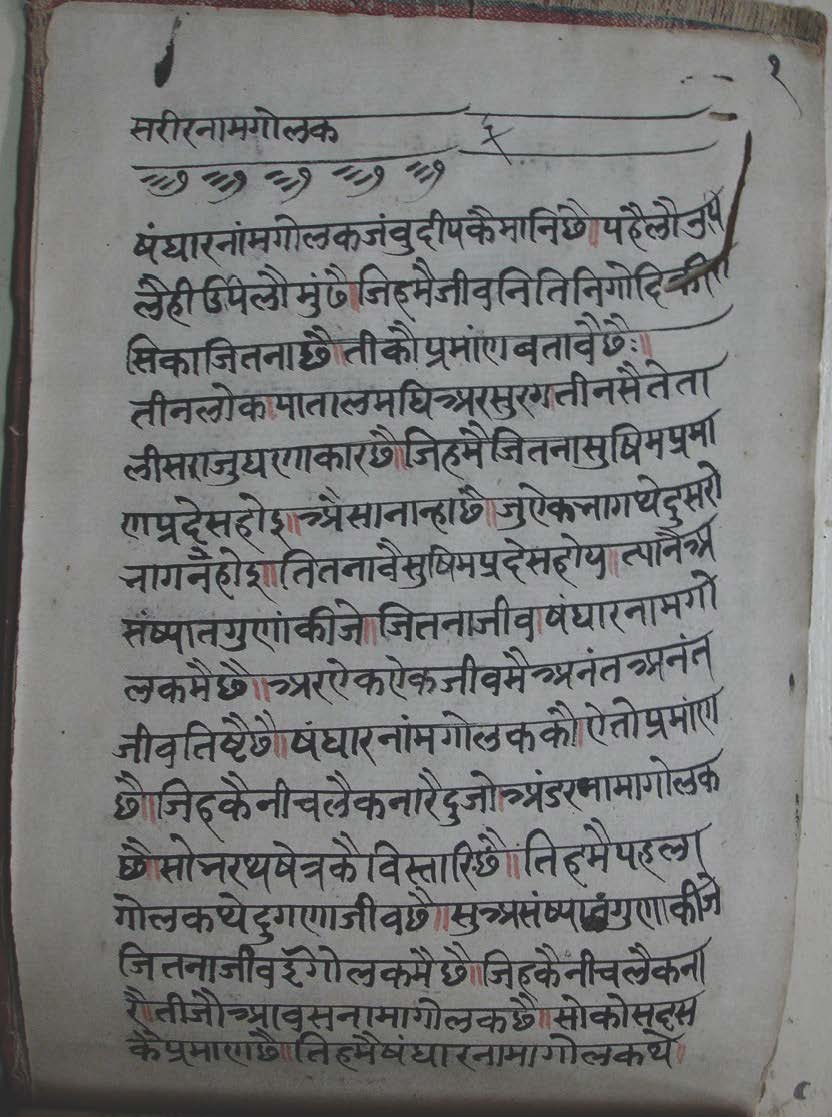 १
सरीरनामगोलक
षंघारनांमगोलकजंवुदीपकैमानिछै॥पहैलौ
लैहीउपैलौमुंछै॥जिहमैजीवनितिनिगोदि
सिकाजितनाछै॥तीकौप्रमांणबतावैछैः॥
तीनलोक॥पातालमघिअरसुरग॥तीनसैतेता
लीसराजुघरणाकारछै॥जिहमैजितनासुषिमप्रमा
णप्रदेसहोइ॥अैसानान्हाछै॥जुऐकभागथेदुसरो
भागनैहोइ॥तितनावैसुषिमप्रदेसहोय॥त्यानैअ
संष्यातगुणांकीजे॥जितनाजीव॥षंघारनामगो
लकमैछै॥अरऐकऐकजीवमैअनंतअनंत
जीवतिष्टैछै॥षंघारनांमगोलककौ॥ऐतोप्रमांण
छै॥जिहकैनीचलैकनारैदुजोअंडरनामागोलक
छै॥सोभरथषेत्रकैविस्तारिछै॥तिहमैपहला
गोलकथेदुगणाजीवछै॥सुअसंष्यातगुणाकीजे
जितनाजीवइंगोलकमैछै॥जिहकैनीचलैकना
रै॥तीजौआवसनामागोलकछै॥सोकोसहस
कैप्रमाणछै॥तिहमैषंघारनामागोलकथे॥